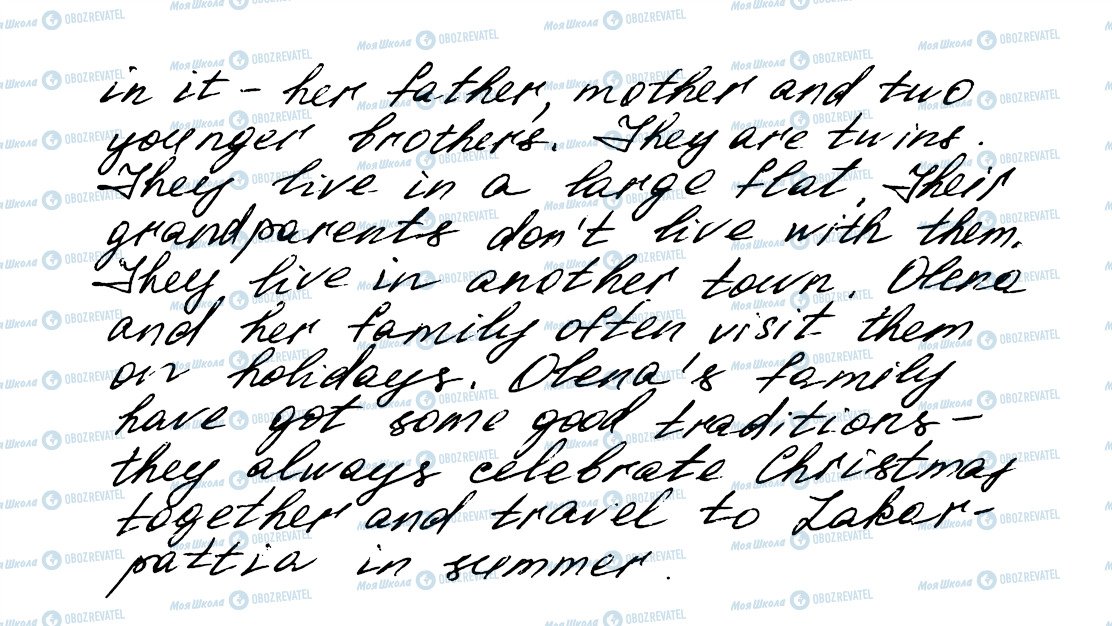 in it - her father, mother and two
younger brother's. They are twins.
They live in a large flat. Their
grandparents don't live with them.
They live in another town. Olena
and her family often visit them
on holidays. Olena's family
have got some good traditions -
they always celebrate Christmas
together and travel to Zakar-
pattia in summer.
МояШкола OBOZREVATEL